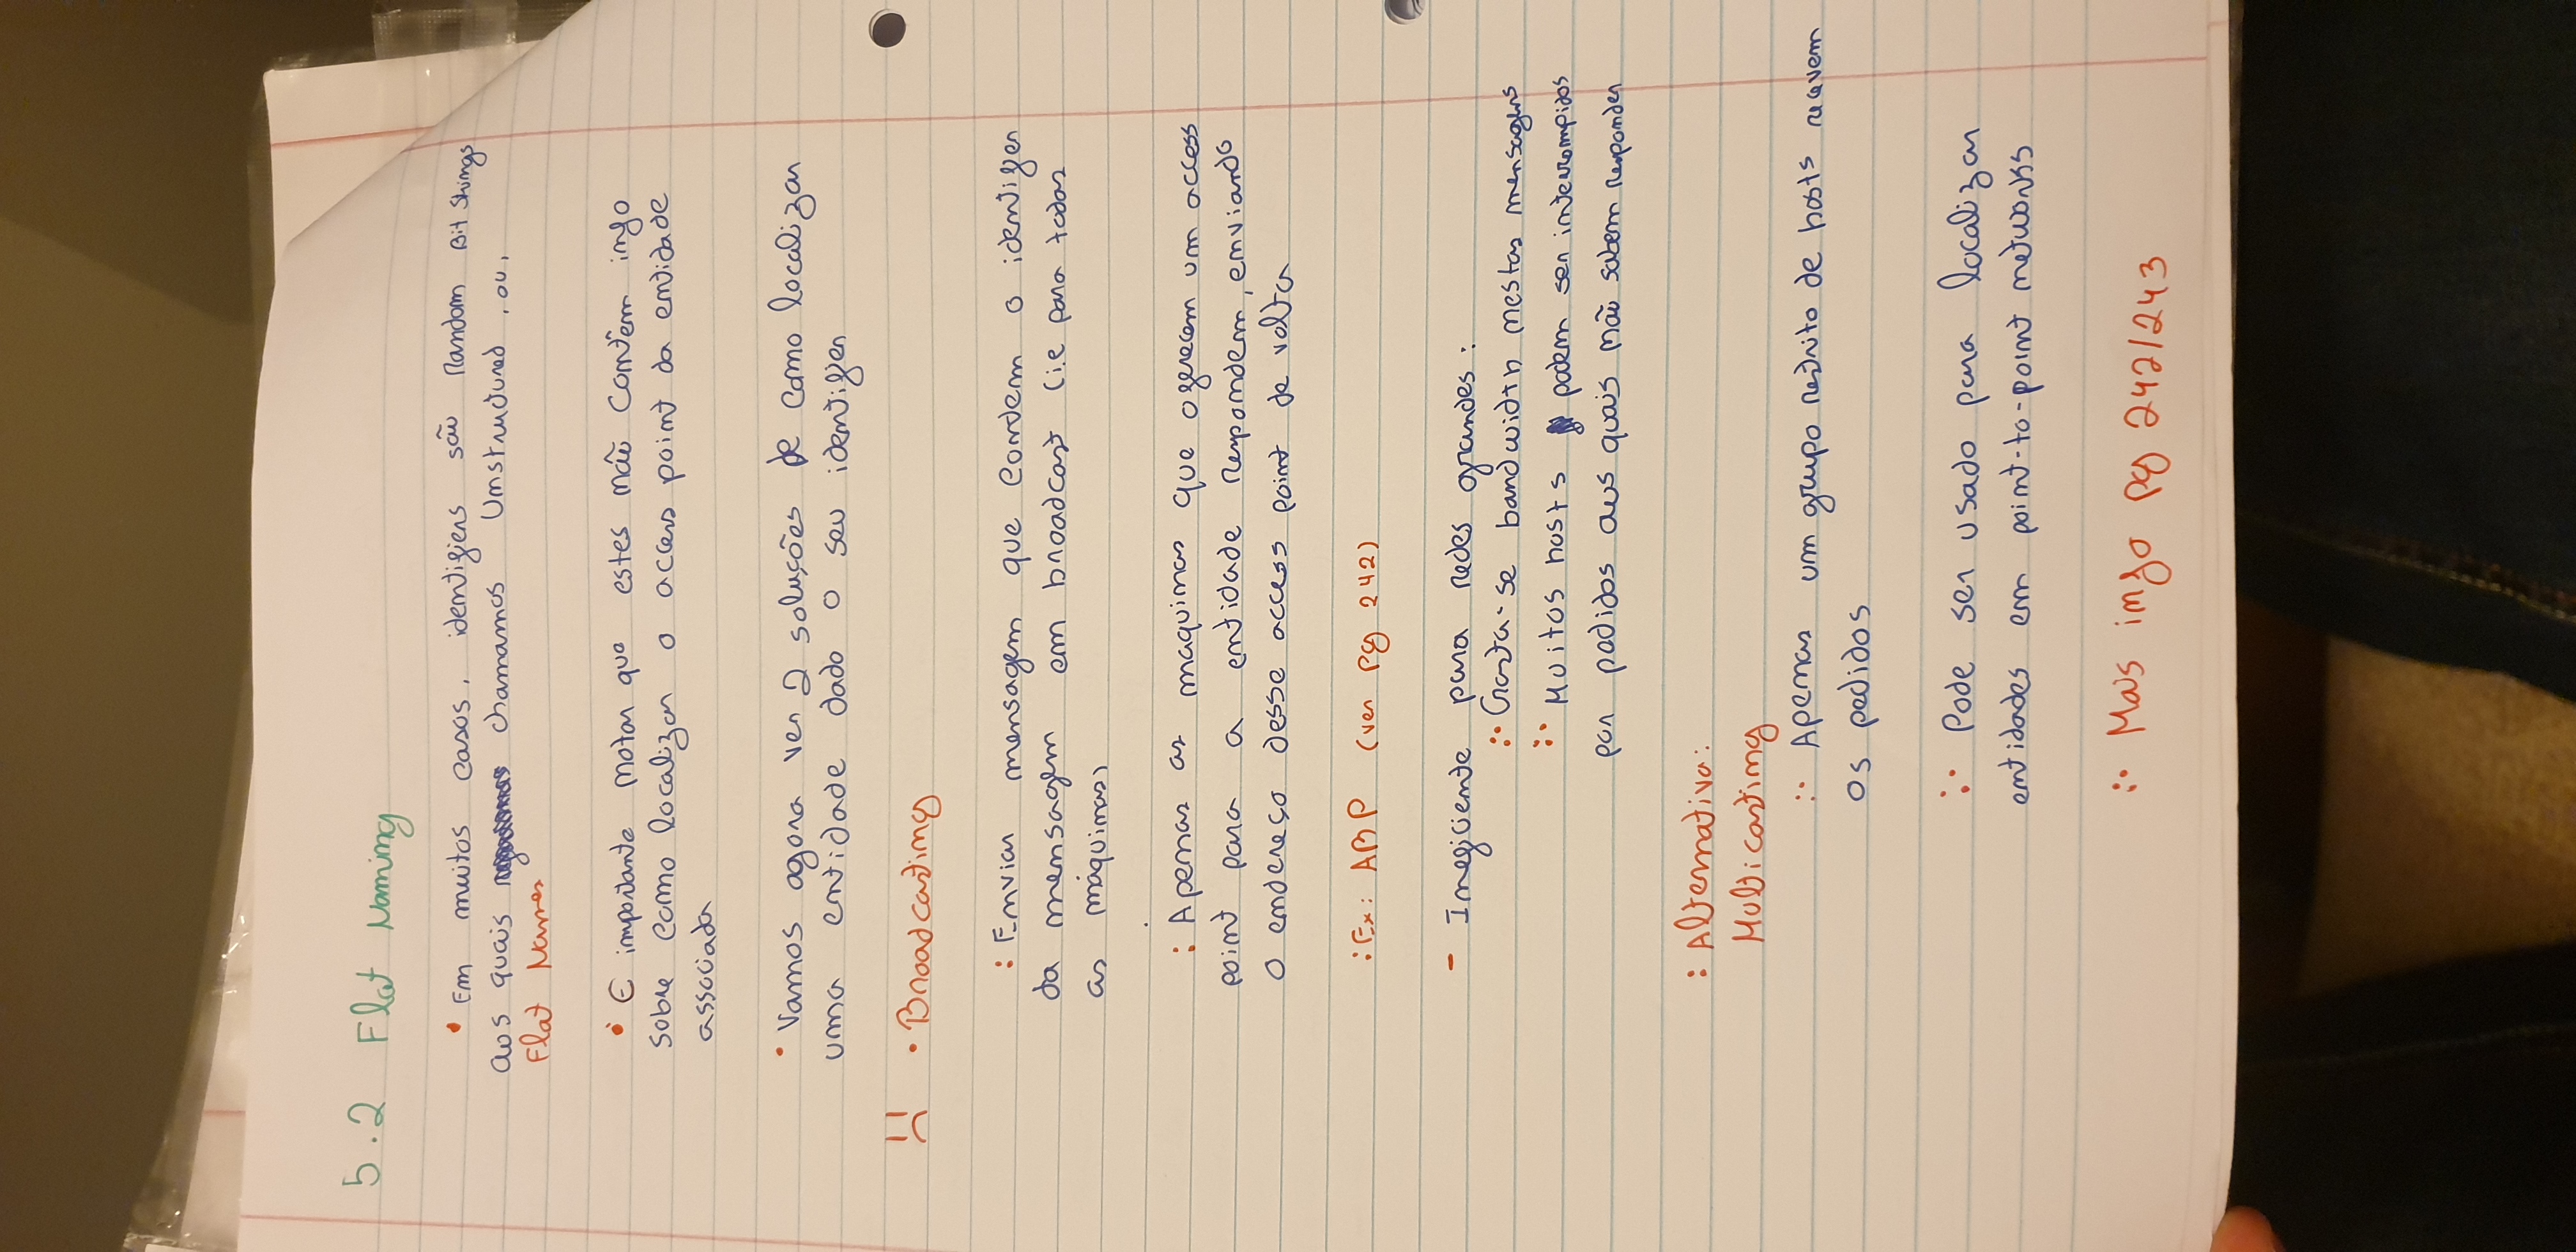 5.2 Flat Naming
• Em muitos casos, identifiers são Random Bit Strings
aos quais chamamos Unstructured, ou,
Flat Names
• É importante notar que estes não contêm info
sobre como localizar o access point da entidade
associada
• Vamos agora ver 2 soluções de como localizar
uma entidade dado o seu identifier
• Broadcasting
: Enviar mensagem que contem o identifier
da mensagem em broadcast (i.e para todas
as máquinas)
: Apenas as maquinas que oferecem um access
point para a entidade respondem, enviando
o endereço desse access point de volta
: Ex: ARP (ver pg 242)
- Ineficiente para redes grandes:
:· Gasta-se bandwidth nestas mensagens
:· Muitos hosts podem ser interrompidos
por pedidos aos quais não sabem responder
: Alternativa:
Multicasting
:· Apenas um grupo restrito de hosts recevem
os pedidos
:· Pode ser usado para localizar
entidades em point-to-point networks
:· Mais info pg 242/243